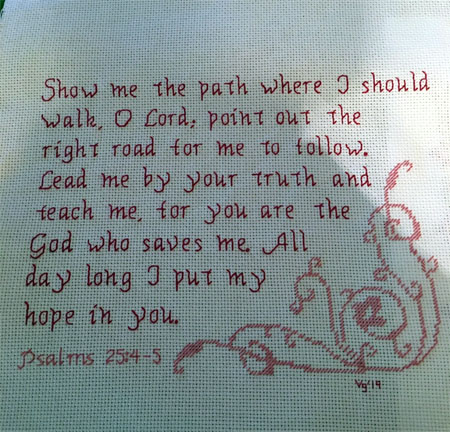 Show me the path where I should
walk, O Lord; point out the
right road for me to follow.
Lead me by your truth and
teach me, for you are the
God who saves me. All
day long I put my
hope in you.
Psalms 25:4-5
Vg'19